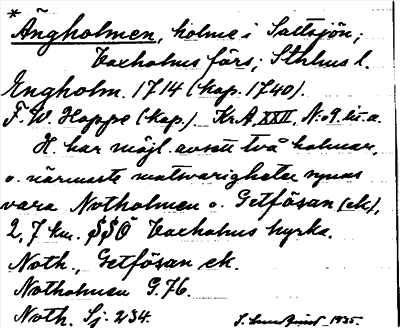 * Ängholmen, holme i Saltsjön,
Vaxholms förs; Sthlms l.
Engholm. 1714 (kop. 1740).
F. W. Hoppe (kop.) Kr A XXII, N:o 9 lit. a.
H. har möjl. avsett två holmar,
o. närmaste motsvarigheten synes
vara Notholmen o. Getfösan (ek),
2,7 km. SSÖ Vaxholms kyrka.
Noth., Getfösan ek.
Notholmen G.76.
Noth. Sj. 234.
1935.